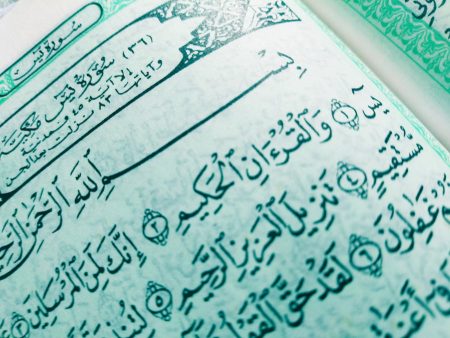 سورة يس
(٣٦) سورة يس مكية
إلا آية ٤٥ فمدنية
وآياتها ٨٣ نزلت بعد الجن
بِسْمِ ٱللَّهِ ٱلرَّحْمَٰنِ ٱلرَّحِي
يسٓ ١ وَٱلْقُرْءَانِ ٱلْحَكِيمِ ٢ إِنَّكَ لَمِنَ ٱلْمُرْسَلِينَ ٣
مُّسْتَقِيمٍ ٤ تَنزِيلَ ٱلْعَزِيزِ ٱلرَّحِيمِ ٥
غَٰفِلُونَ ٦ لَقَدْ حَقَّ ٱلْقَوْلُ
فِىٓ